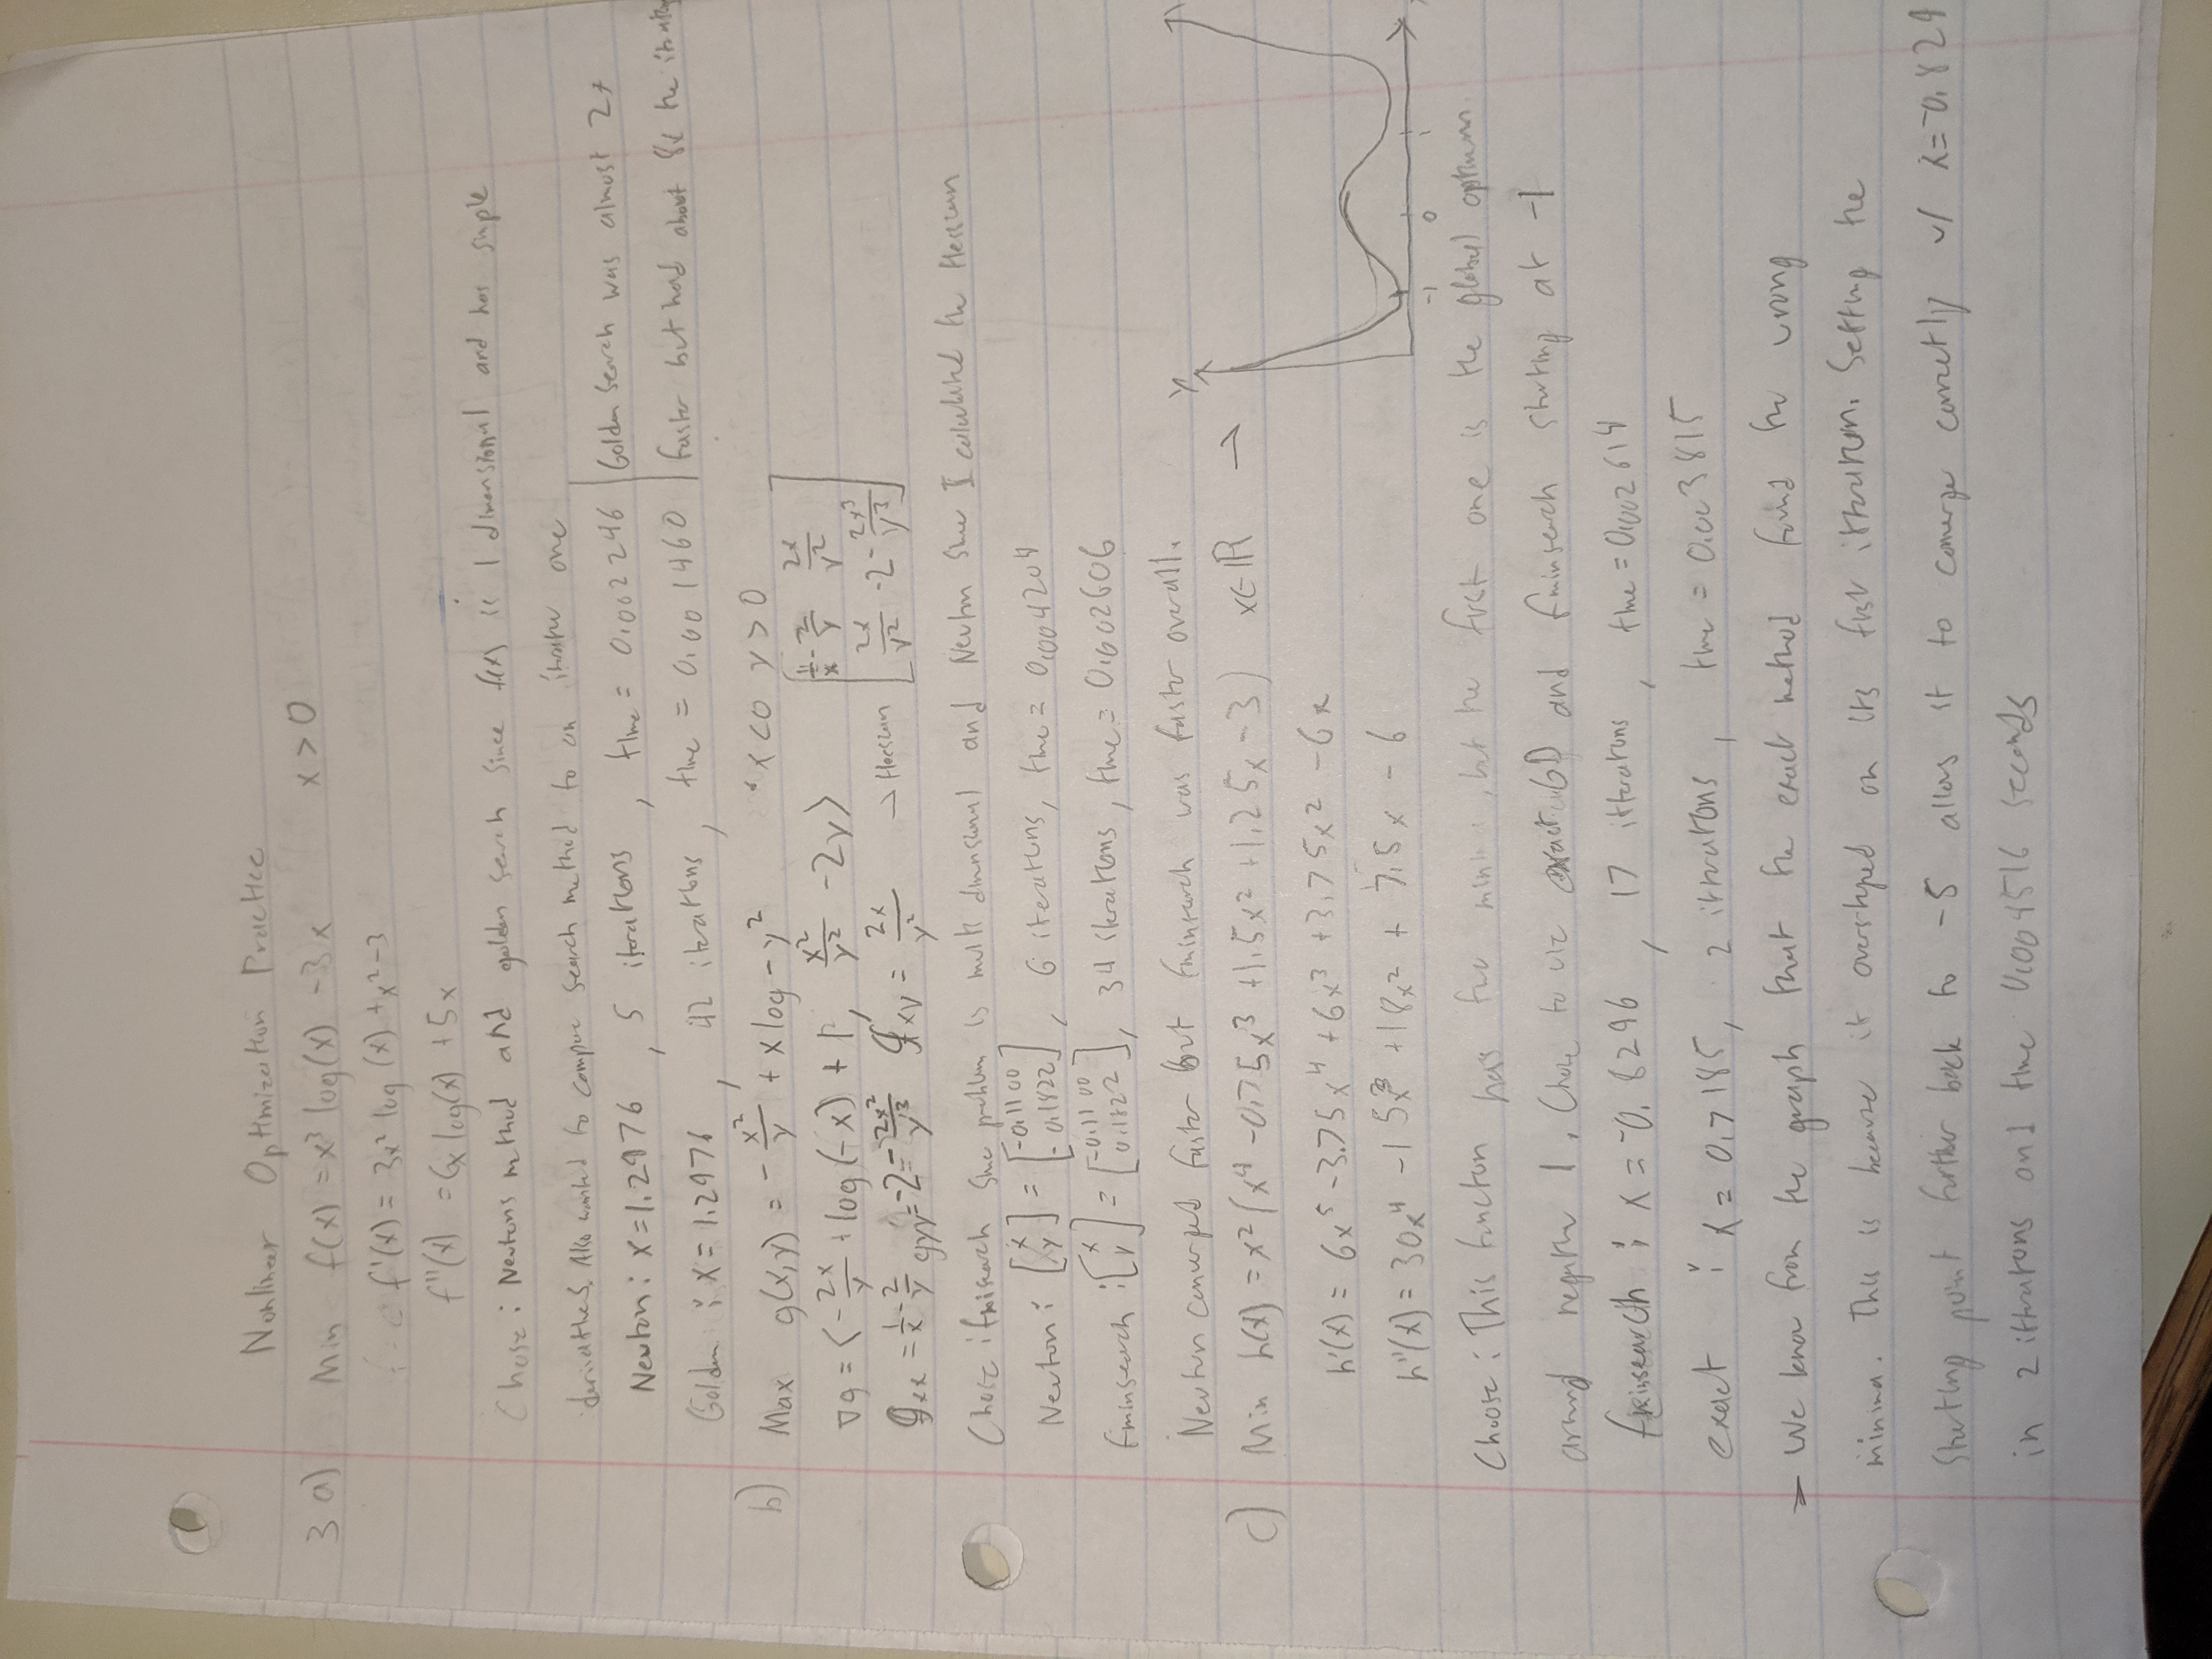 Nonlinear Optimization Practice
3 a) Min f(x) = x³ log(x) - 3x x > 0
f'(x) = 3x² log(x) + x² - 3
f''(x) = 6x log(x) + 5x
Chose: Newtons method and golden search since f(x) is 1 dimensional and has simple
derivatives. Also wanted to compare search method to an iterative one
Newton: x = 1.2976, 5 iterations, time = 0.002246 | Golden Search was almost 2x
Golden: x = 1.2976, 42 iterations, time = 0.001460 | faster but had about 8x the
b) Max g(x,y) = - x²/y + x log - y² x<0 y>0
∇g = < -2x/y + log(-x) + 1, x²/y² - 2y>
gxx = 1/x - 2/y gyy = -2 - 2x²/y³ gxy = 2x/y² → Hessian [1/x - 2/y 2x/y²
2x/y² -2 - 2x³/y³]
Chose: fminsearch since problem is multi dimensional and Newton since I calculated the Hessian
Newton: [x y] = [-0.1100 0.1822], 6 iterations, time = 0.004204
fminsearch: [x y] = [-0.1100 0.1822], 34 iterations, time = 0.002606
Newton converged faster but fminsearch was faster overall.
c) Min h(x) = x²(x⁴ - 0.75x³ + 1.5x² + 1.25x - 3) x∈ℝ →
y
-1 0 1
h'(x) = 6x⁵ - 3.75x⁴ + 6x³ + 3.75x² - 6x
h''(x) = 30x⁴ - 15x³ + 18x² + 7.5x - 6
Choose: This function has two mini, but the first one is the global optimum.
around negative 1, Chose to use exact GD and fminsearch starting at -1
fminsearch: x = -0.8296, 17 itterations, time = 0.002614
exact: x = 0.7185, 2 itterations, time = 0.003815
→ We know from the graph that the exact method found the wrong
minima. This is because it overstepped on its first itteration. Setting the
starting point further back to -5 allows it to converge correctly w/ x = -0.829
in 2 itterations and time 0.004516 seconds